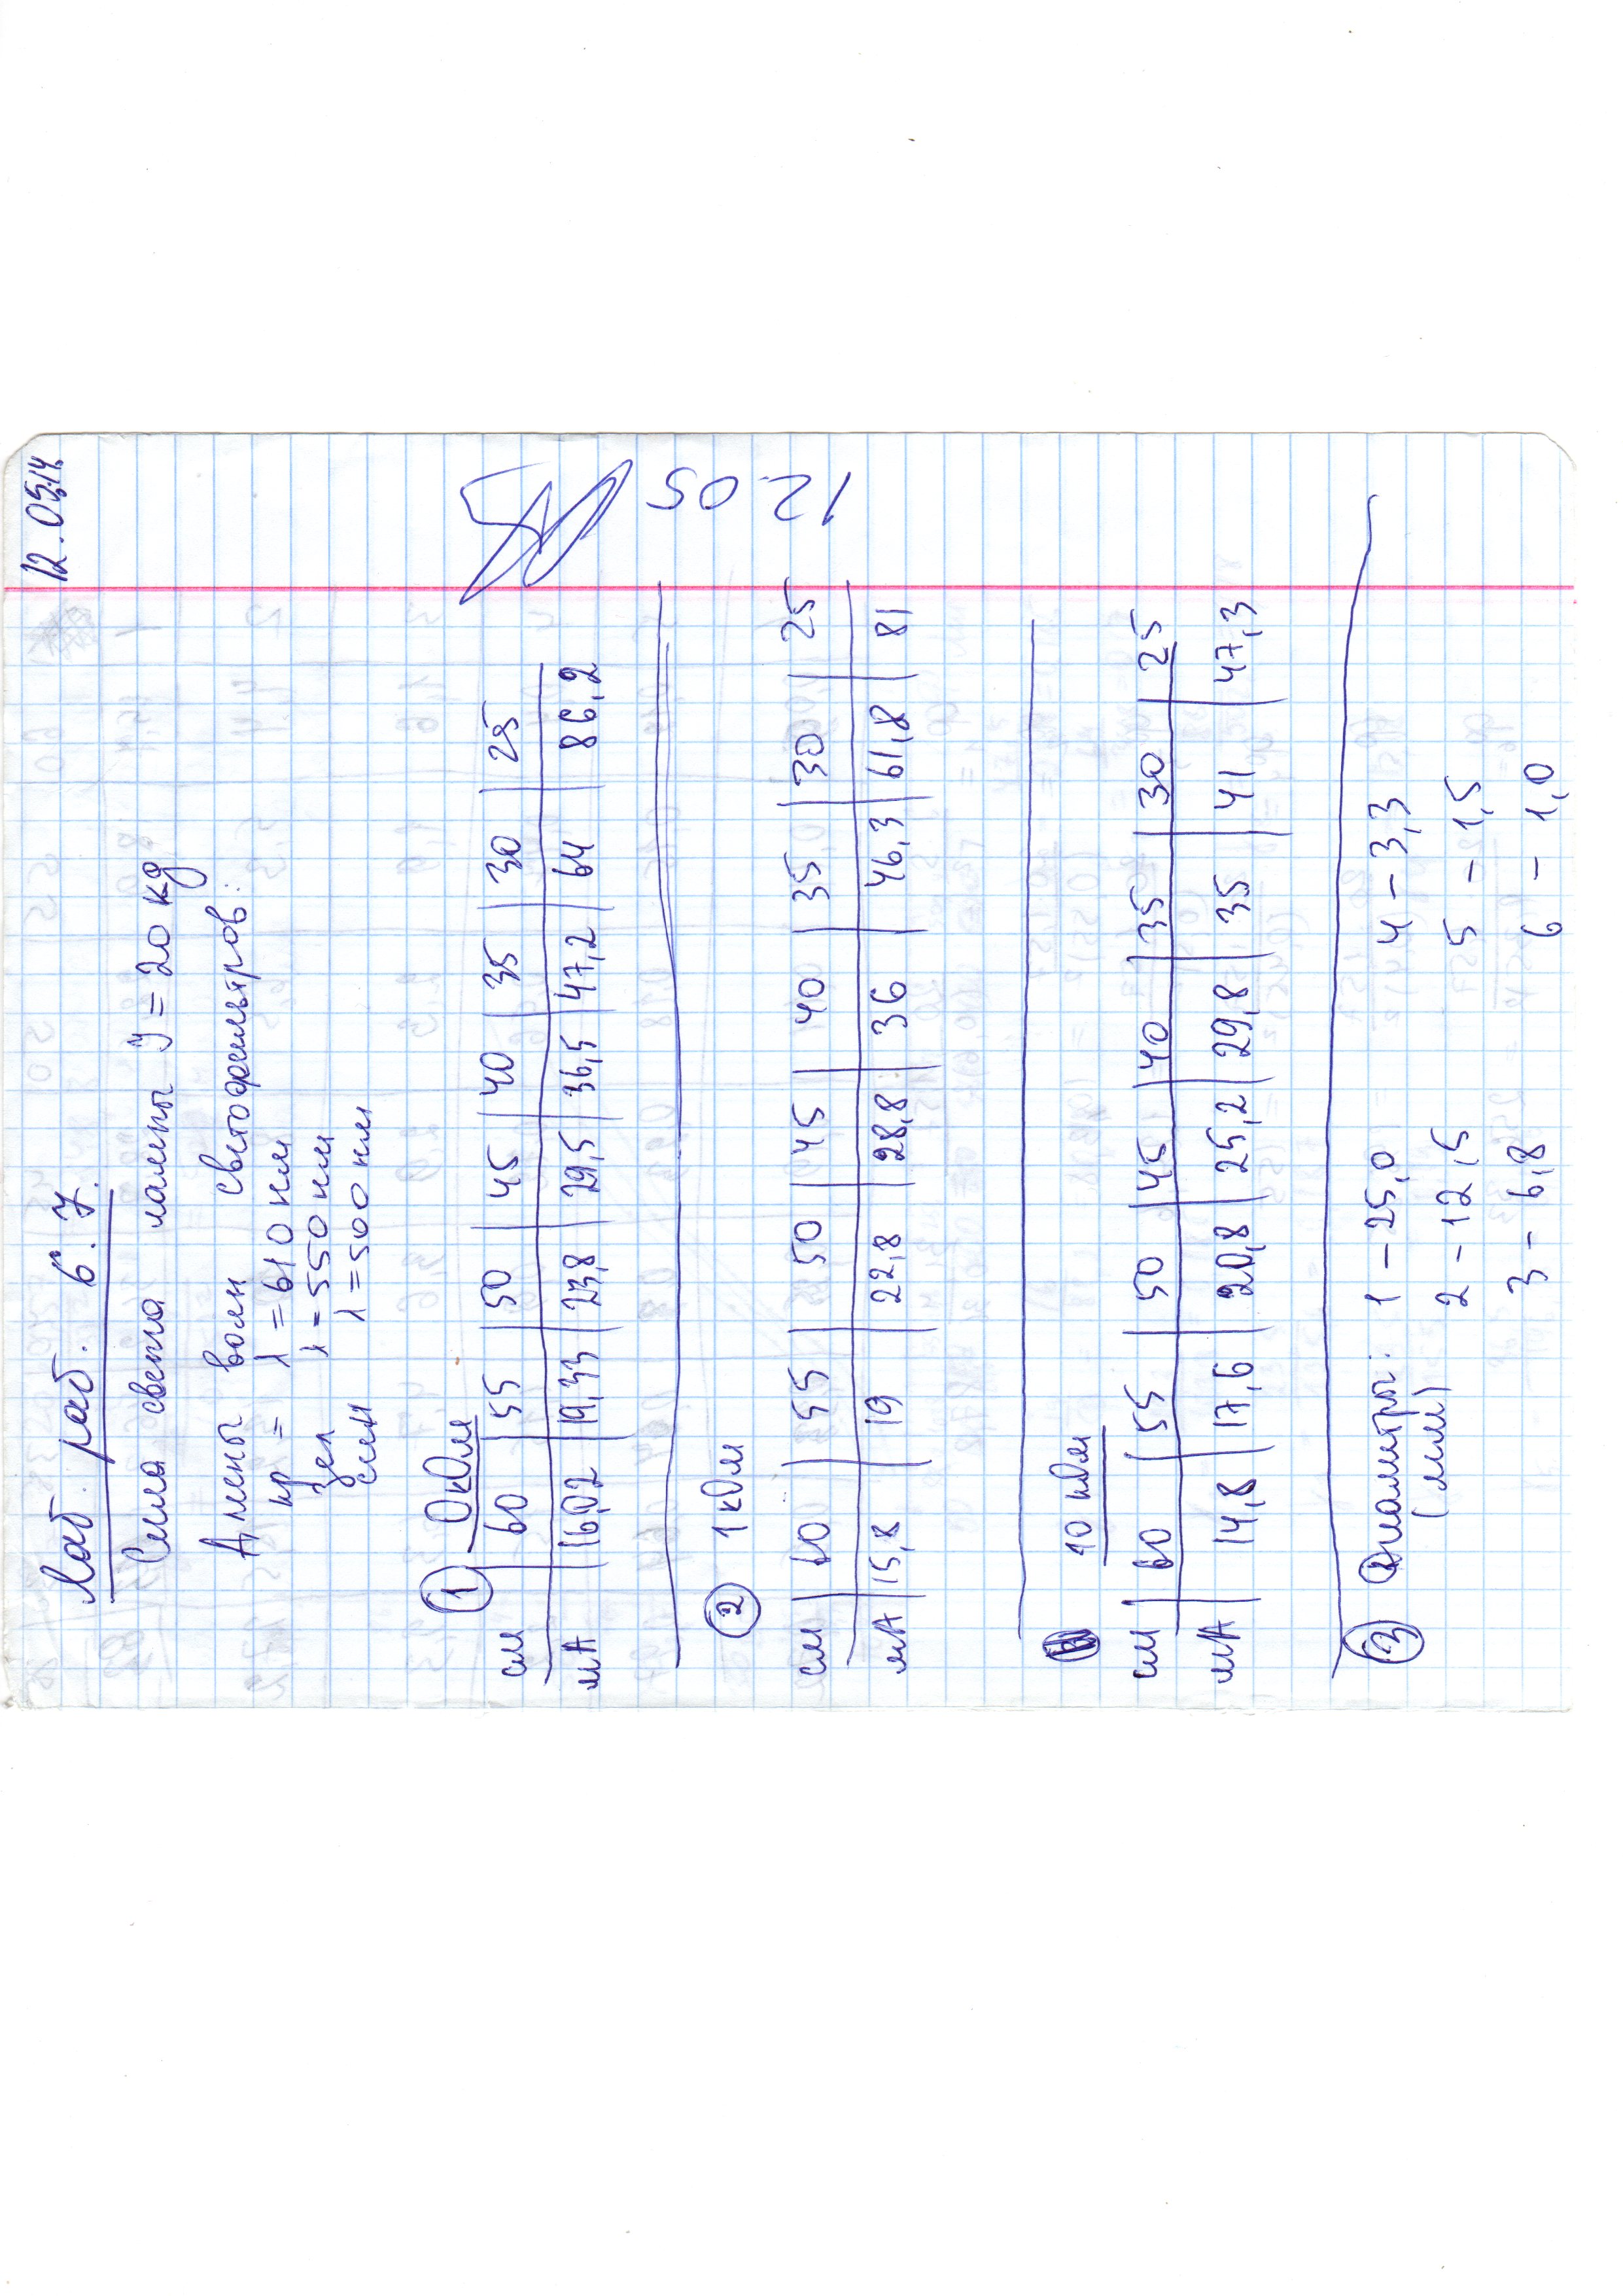 12.05.14.
Лаб. раб. 6.7.
Сила света лампы J = 20 кд
Длины волн светофильтров:
кр = λ = 610 нм
зел λ = 550 нм
син λ = 500 нм
1 0 кОм
см 60 55 50 45 40 35 30 25
мА 16,02 19,33 23,8 29,5 36,5 47,2 64 86,2
12.05
2 1 кОм
см 60 55 50 45 40 35 30 25
мА 15,8 19 22,8 28,8 36 46,3 61,8 81
10 кОм
см 60 55 50 45 40 35 30 25
мА 14,8 17,6 20,8 25,2 29,8 35 41 47,3
3 Диаметры: 1 – 25,0 4 – 3,3
(мм)
2 – 12,5 5 – 1,5
3 – 6,8 6 – 1,0